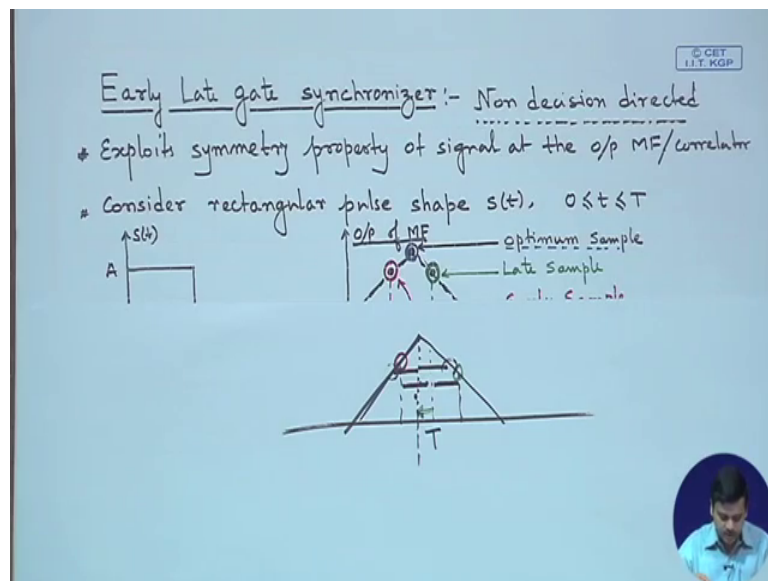 © CET
I.I.T. KGP
Early Late gate synchronizer:- Non decision directed
* Exploits symmetry property of signal at the o/p MF/correlator
* Consider rectangular pulse shape s(t), 0≤t≤T
s(t)
A
o/p of MF
optimum sample
Late sample
T